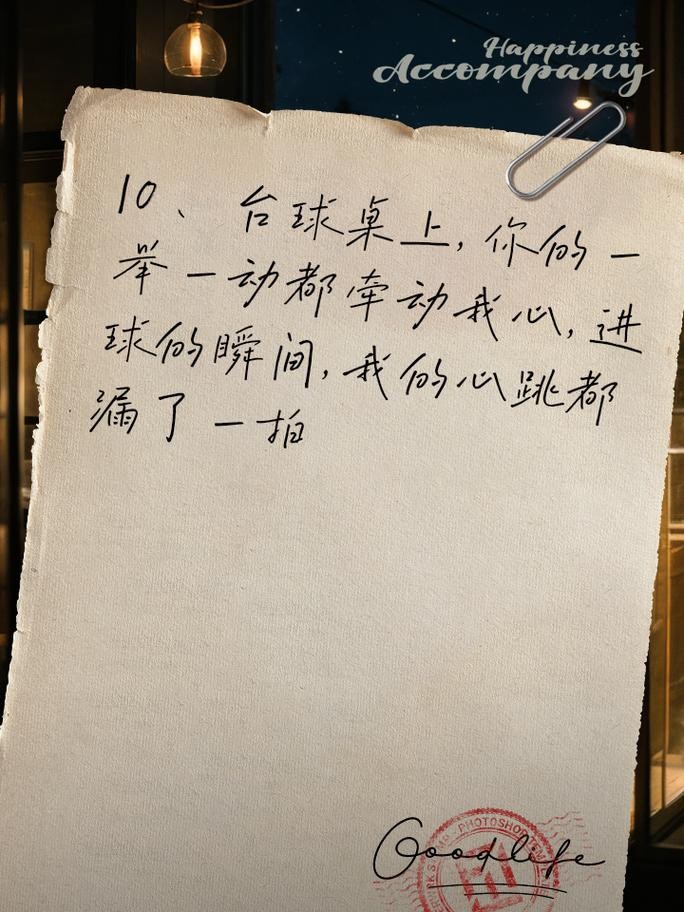 Happiness
Accompany
10、台球桌上,你的一
举一动都牵动我心,进
球的瞬间,我的心跳都
漏了一拍
PHOTOSHOP
Goodlife